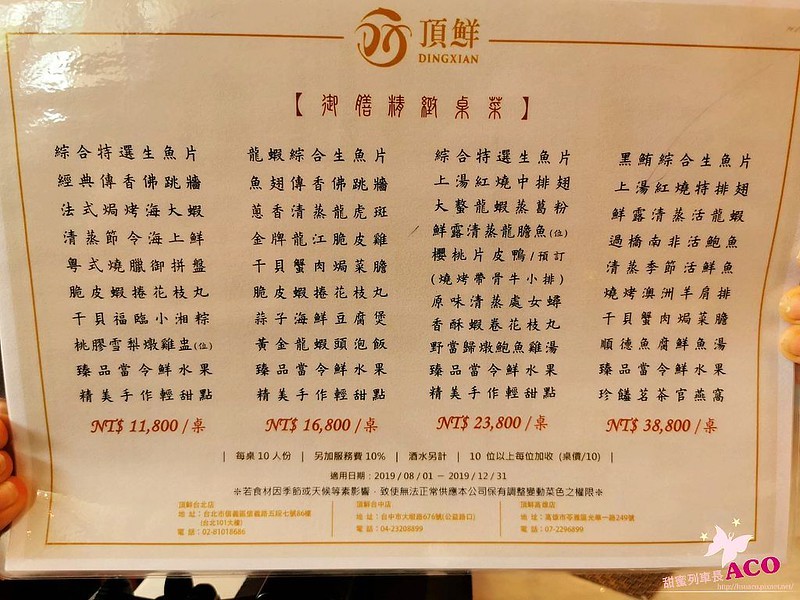 頂鮮
DINGXIAN
【御膳精緻桌菜】
綜合特選生魚片
經典傳香佛跳牆
法式焗烤海大蝦
清蒸節令海上鮮
粵式燒臘御拼盤
脆皮蝦捲花枝丸
干貝福臨小湘粽
桃膠雪梨燉雞盅(位)
臻品當令鮮水果
精美手作輕甜點
NT$ 11,800 /桌
龍蝦綜合生魚片
魚翅傳香佛跳牆
蔥香清蒸龍虎斑
金牌龍江脆皮雞
干貝蟹肉焗菜膽
脆皮蝦捲花枝丸
蒜子海鮮豆腐煲
黃金龍蝦頭泡飯
臻品當令鮮水果
精美手作輕甜點
NT$ 16,800 /桌
綜合特選生魚片
上湯紅燒中排翅
大螯龍蝦蒸葛粉
鮮露清蒸龍膽魚(位)
櫻桃片皮鴨/預訂
(燒烤帶骨牛小排)
原味清蒸處女蟳
香酥蝦卷花枝丸
野當歸燉鮑魚雞湯
臻品當令鮮水果
精美手作輕甜點
NT$ 23,800 /桌
黑鮪綜合生魚片
上湯紅燒特排翅
鮮露清蒸活龍蝦
過橋南非活鮑魚
清蒸季節活鮮魚
燒烤澳洲羊肩排
干貝蟹肉焗菜膽
順德魚腐鮮魚湯
臻品當令鮮水果
珍饈茗茶官燕窩
NT$ 38,800 /桌
| 每桌10人份 | 另加服務費10% | 酒水另計 | 10 位以上每位加收 (桌價/10) |
適用日期：2019 / 08 / 01 － 2019 / 12 / 31
※若食材因季節或天候等素影響、致使無法正常供應本公司保有調整變動菜色之權限※
頂鮮台北店
地 址：台北市信義區信義路五段七號86樓
(台北101大樓)
電 話：02-81018686
頂鮮台中店
地 址：台中市大墩路676號(公益路口)
電 話：04-23208899
頂鮮高雄店
地 址：高雄市苓雅區光華一路249號
電 話：07-2296899
甜蜜列車長ACO
http://hsuaco.pixnet.net/